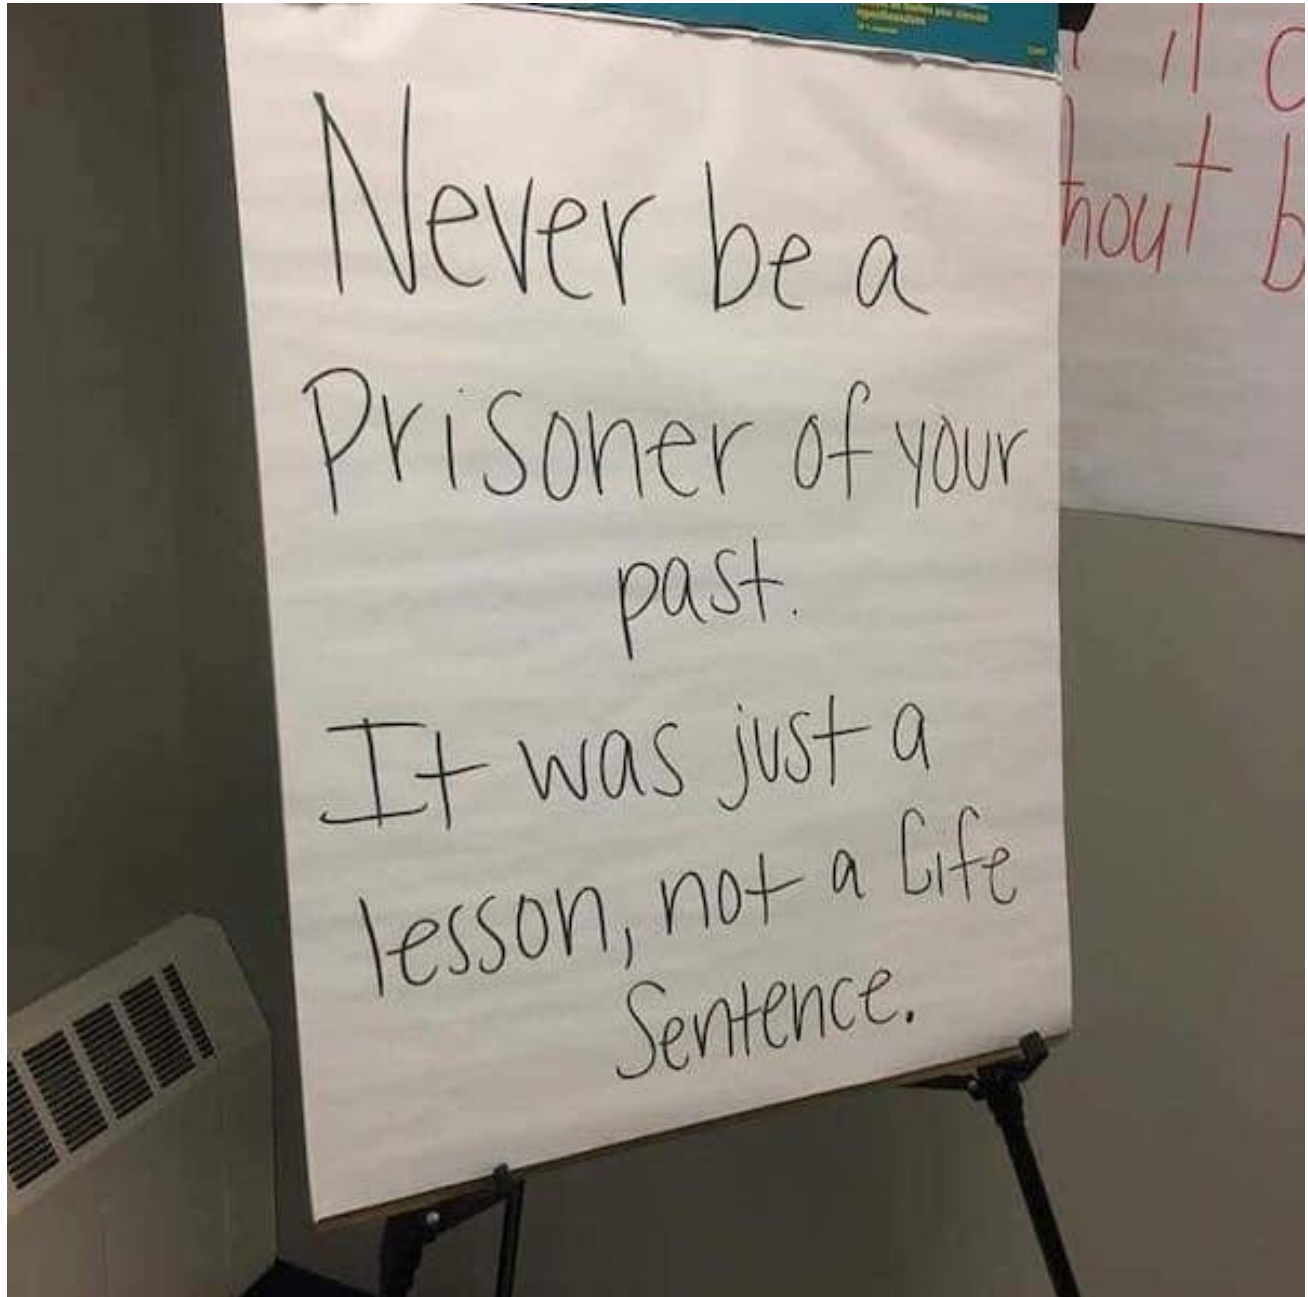 Never be a
Prisoner of your
past.
It was just a
lesson, not a life
Sentence.
hout b